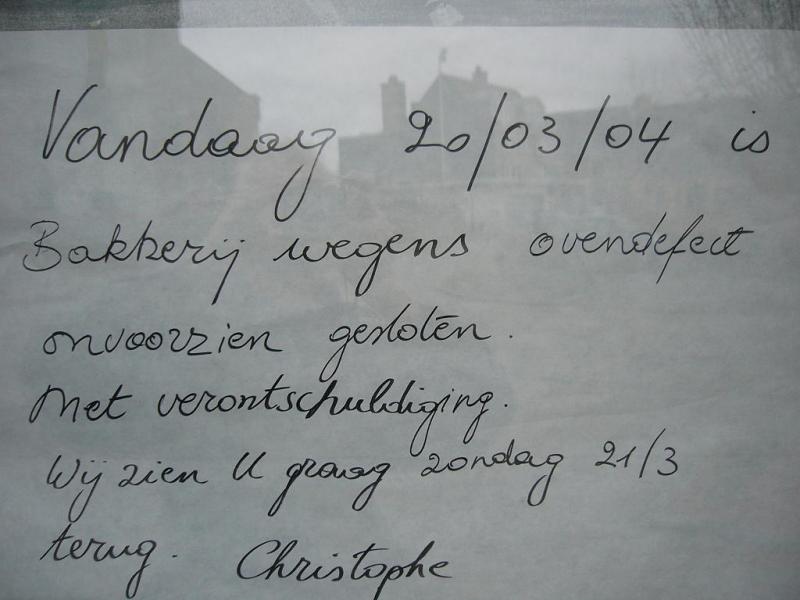 Vandaag 20/03/04 is
Bakkerij wegens ovendefect
onvoorzien gesloten.
Met verontschuldiging.
Wij zien U graag zondag 21/3
terug. Christophe